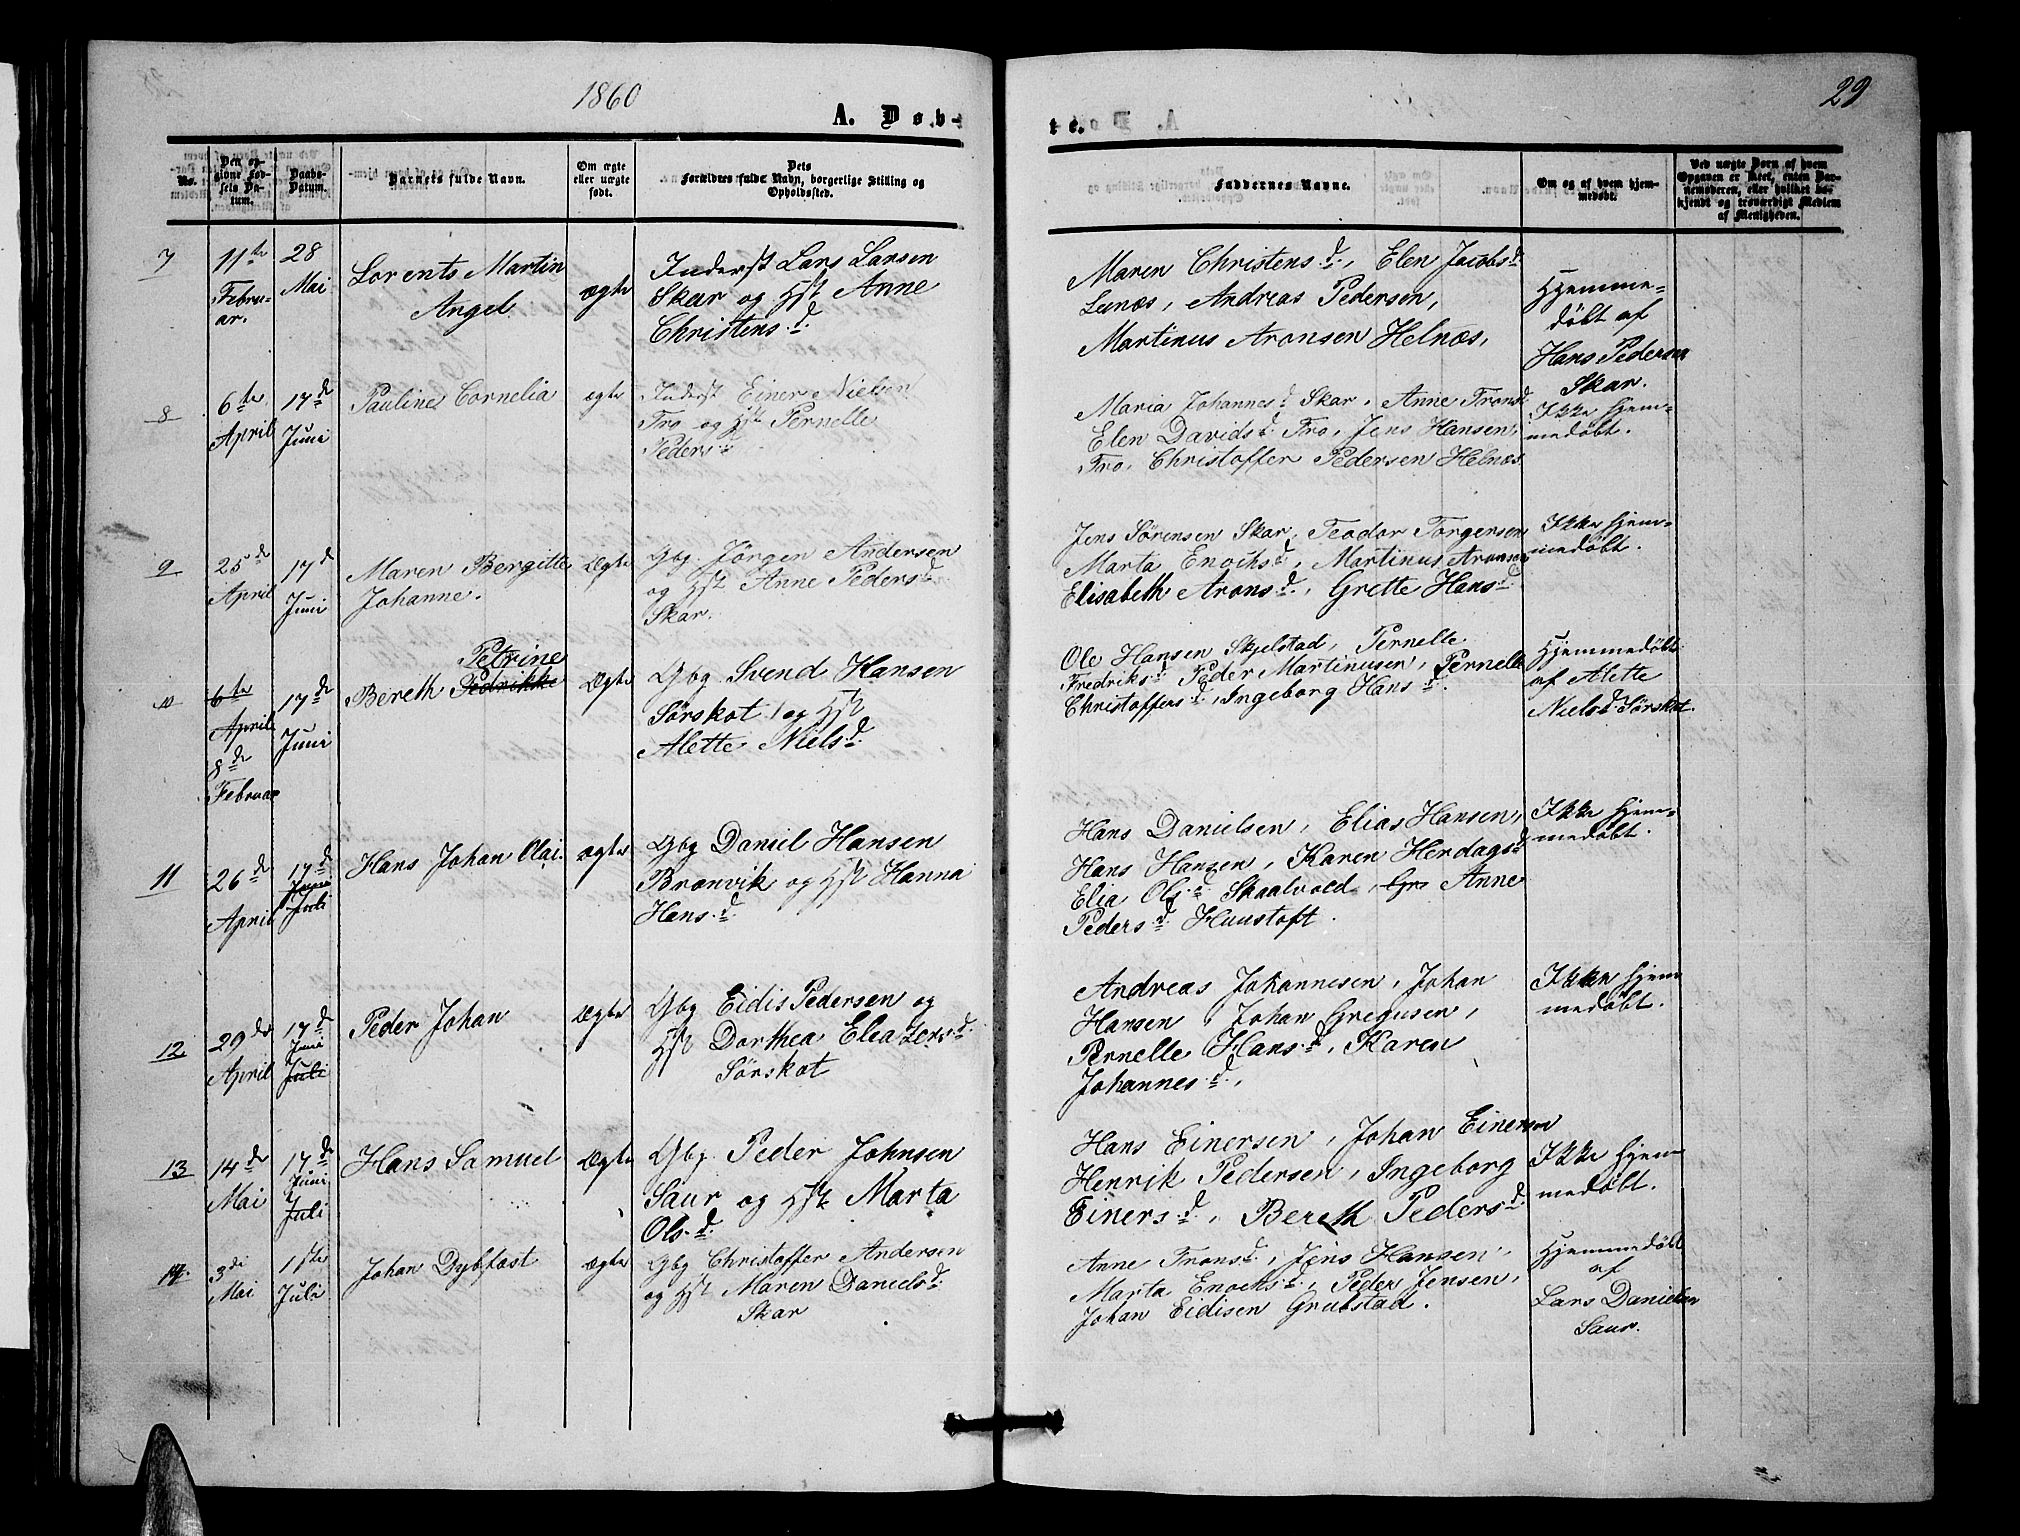 1860
29
A. Døb-
te.
No.
Den op-
givne Fød-
sels Da-
tum.
Daabs-
Datum.
Barnets fulde Navn.
Om ægte
eller uægte
født.
Dets
Forældres fulde Navn, borgerlige Stilling og
Opholdssted.
Faddernes Navne.
Om og af hvem hjem-
medøbt.
Ved uægte Børn af hvem
Opgaven er skeet, enten Bar-
nemoderen, eller hvilket be-
kjendt og troværdigt Medlem
af Menigheden.
7
11te
Febru-
ar.
28
Mai
Lorents Martin
Angel.
ægte
Inderst Lars Larsen
Skar og Hst Anne
Christens.d.
Maren Christensd., Elen Jacobsd
Lunæs, Andreas Pedersen,
Martinus Aronsen Helnæs,
Hjemme-
døbt af
Hans Pedersen
Skar.
8
6te
April
17d
Juni
Pauline Cornelia
ægte
Inderst Einer Nielsen
Fro og Hst Pernelle
Peders.d
Maria Johannesd Skar, Anne Tronsd
Elen Davidsd. Fro, Jens Hansen,
Fro, Christoffer Pedersen Helnæs
Ikke hjem-
medøbt.
9
25d
April
17d
Juni
Maren Bergitte
Johanne.
Ægte
Gbg. Jørgen Andersen
og Hst Anne Pedersd.
Skar.
Jens Sørensen Skar, Teodor Torgersen
Marta Enochsd., Martinus Aronsen
Elisabeth Arons.d., Grette Hansd
Ikke hjem-
medøbt.
10
6te
April
8de
Februar
17d
Juni
Petrine
Bereth Pedrikke
Ægte
Gbg Svend Hansen
Sørskot, og Hst
Alette Nielsd.
Ole Hansen Skjelstad, Pernelle
Fredriksd Peder Martinusen, Pernelle
Christoffersd., Ingeborg Hansd.
Hjemmedøbt
af Alette
Nielsd Sørskot.
11
26d
April
17d
Juni
Juli
Hans Johan Olai.
ægte
Gbg Daniel Hansen
Brænvik og Hst Hanna
Hans.d.
Hans Danielsen, Elias Hansen,
Hans Hansen, Karen Herdagsd
Elia Ols.d Skaalvold, Gr Anne
Pedersd. Huustoft.
Ikke hjem-
medøbt.
12
29de
April
17d
Juni
Juli
Peder Johan
Ægte
Gbg Eidis Pedersen og
Hst Dorthea Eleazersd.
Sørskot
Andreas Johannesen, Johan
Hansen, Johan Gregusen,
Pernelle Hansd., Karen
Johannes.d.,
Ikke hjem
medøbt.
13
14de
Mai
17d
Juni
Juli
Hans Samuel
Ægte
Gbg. Peder Johnsen
Saur og Hst Marta
Ols.d.
Hans Einersen, Johan Einersen
Henrik Pedersen, Ingeborg
Einers.d., Bereth Pedersd.
Ikke hjem-
medøbt.
14.
3di
Mai
1ste
Juli
Johan Dybfast
ægte
Gbg Christoffer Andersen
og Hst Maren Danielsd.
Skar
Anne Tronsd., Jens Hansen,
Marta Enochs.d., Peder Jensen,
Johan Eidisen Grubstad.
Hjemmedøbt
af
Lars Danielsen
Saur.